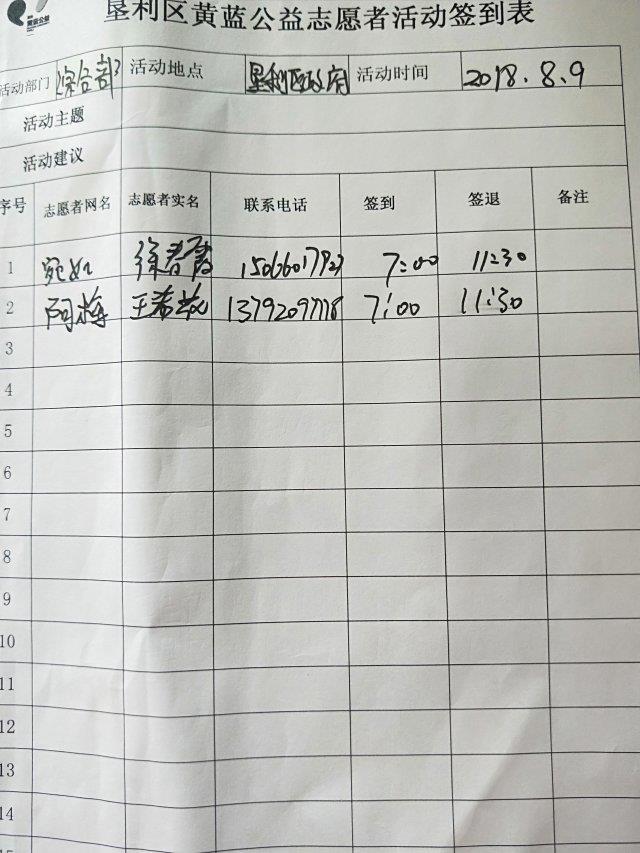 黄蓝公益
垦利区黄蓝公益志愿者活动签到表
活动部门 综合部 活动地点 垦利区政府 活动时间 2018.8.9
活动主题
活动建议
序号 志愿者网名 志愿者实名 联系电话 签到 签退 备注
1 宛如 徐春霞 15066017923 7:00 11:30
2 阿梅 王希 13792097778 7:00 11:30
3
4
5
6
7
8
9
10
11
12
13
14